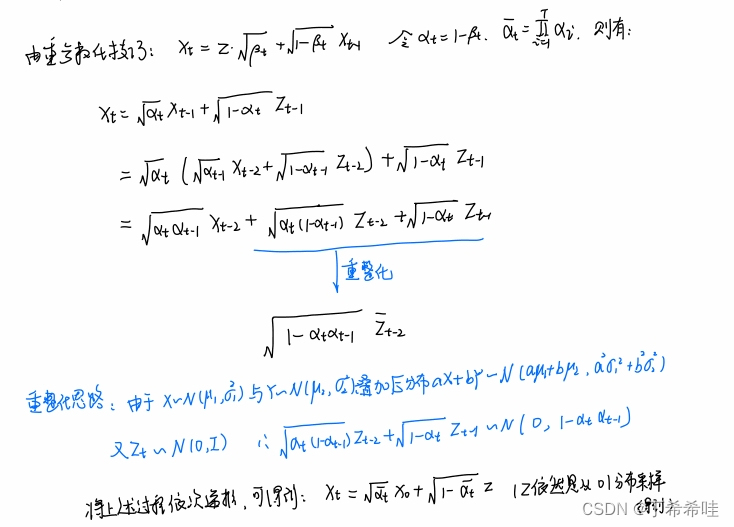 由重参数化技巧: x_t = z·√β_t + √(1-β_t) x_{t-1} 令 α_t = 1-β_t. ᾱ_t = ∏_{i=1}^{T} α_i, 则有:
x_t = √α_t x_{t-1} + √(1-α_t) z_{t-1}
= √α_t (√α_{t-1} x_{t-2} + √(1-α_{t-1}) z_{t-2}) + √(1-α_t) z_{t-1}
= √(α_t α_{t-1}) x_{t-2} + √(α_t(1-α_{t-1})) z_{t-2} + √(1-α_t) z_{t-1}
重整化
√(1-α_t α_{t-1}) z̄_{t-2}
重整化思路: 由于 X~N(μ_1, σ_1²) 与 Y~N(μ_2, σ_2²) 叠加后分布 aX+bY~N(aμ_1+bμ_2, a²σ_1²+b²σ_2²)
又 z_t ~ N(0,I) ∴ √(α_t(1-α_{t-1})) z_{t-2} + √(1-α_t) z_{t-1} ~ N(0, 1-α_t α_{t-1})
将上述过程依次递推, 可得到: x_t = √ᾱ_t x_0 + √(1-ᾱ_t) z (z依然是从01分布采样
CSDN @丁希希哇